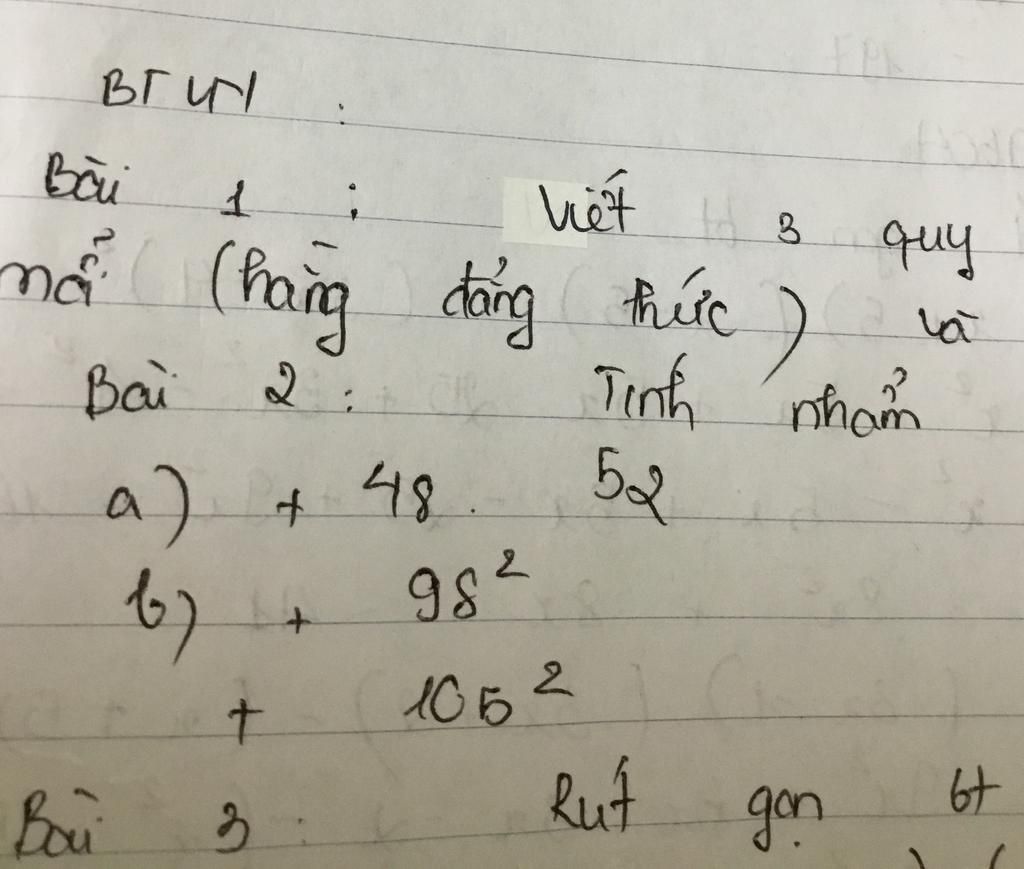 BTVN :
Bài 1 : Viết 3 quy
(hằng đẳng thức) và
Bài 2 : Tính nhẩm
a) + 48 . 52
b) + 98²
+ 105²
Bài 3 : Rút gọn bt